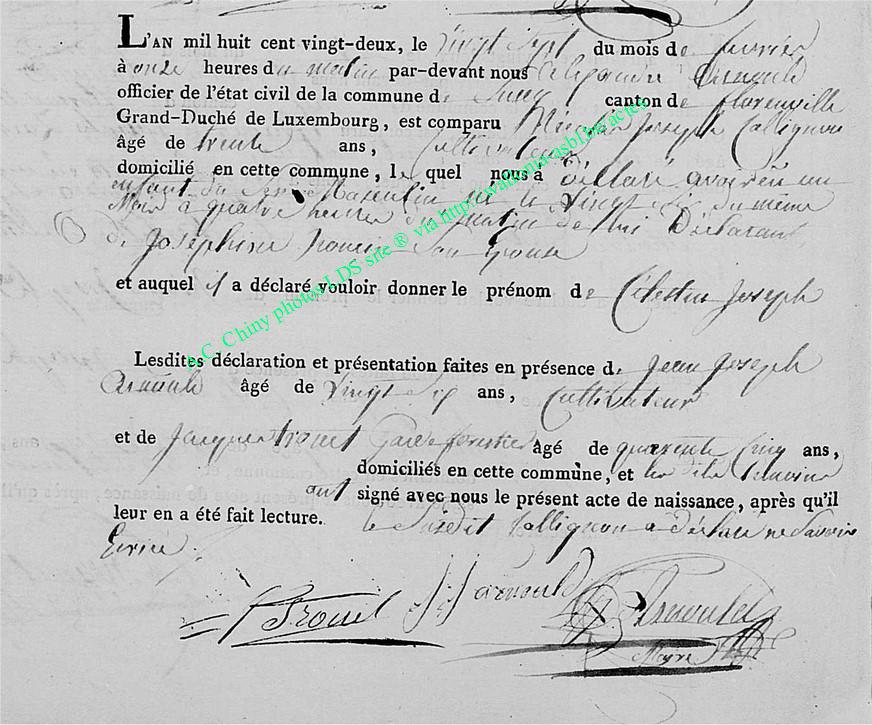 L'AN mil huit cent vingt-deux, le vingt Sept du mois de fevrier
à onze heures du matin par-devant nous Arnould
officier de l'état civil de la commune de canton de florenville
Grand-Duché de Luxembourg, est comparu Joseph Collignon
âgé de trente ans, Cultivateur
domicilié en cette commune, le quel nous a Déclaré avoir eu un
enfant du Sexe Masculin né le Vingt Six du meme
Mois à quatre heures du matin de lui Déclarant
& de Joséphine son Epouse
et auquel il a déclaré vouloir donner le prénom de Célestin Joseph
Lesdites déclaration et présentation faites en présence de Jean Joseph
Arnould âgé de Vingt Six ans, Cultivateur
et de Jacques trouet Garde forestier âgé de quarente Cinq ans,
domiciliés en cette commune, et les dits temoins
ont signé avec nous le présent acte de naissance, après qu'il
leur en a été fait lecture. le Susdit Collignon a déclaré ne Savoir
Ecrire.
J Trouet J: J: arnould Arnould
Mayre
A.C. Chiny photos LDS site ® via http:/ actes